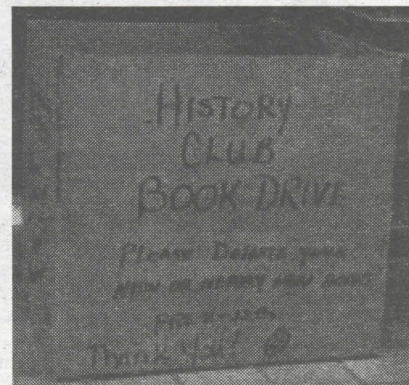 HISTORY
CLUB
BOOK DRIVE
PLEASE DONATE YOUR
NEW OR NEARLY NEW BOOKS
Thank You!